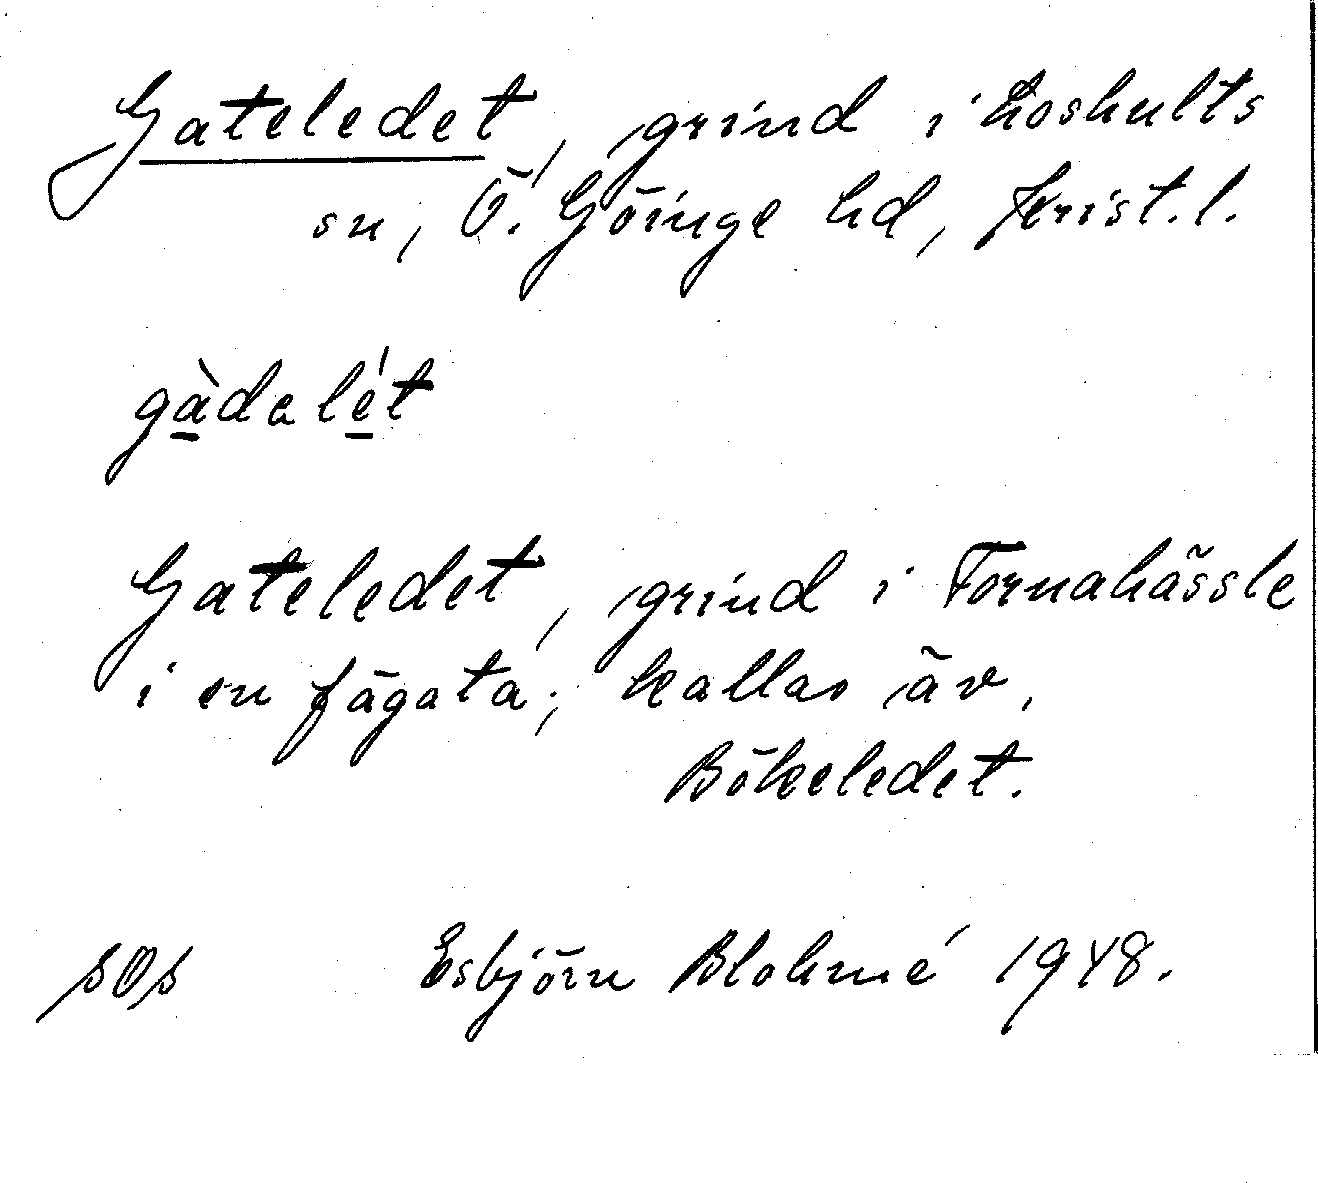 Gateledet, grind i Loshults
sn, Ö. Göinge hd, Krist. l.
gàdalét
Gateledet, grind i Tornahässle
i en fägata; kallas äv.
Bökeledet.
SOS Esbjörn Blohmé 1948.